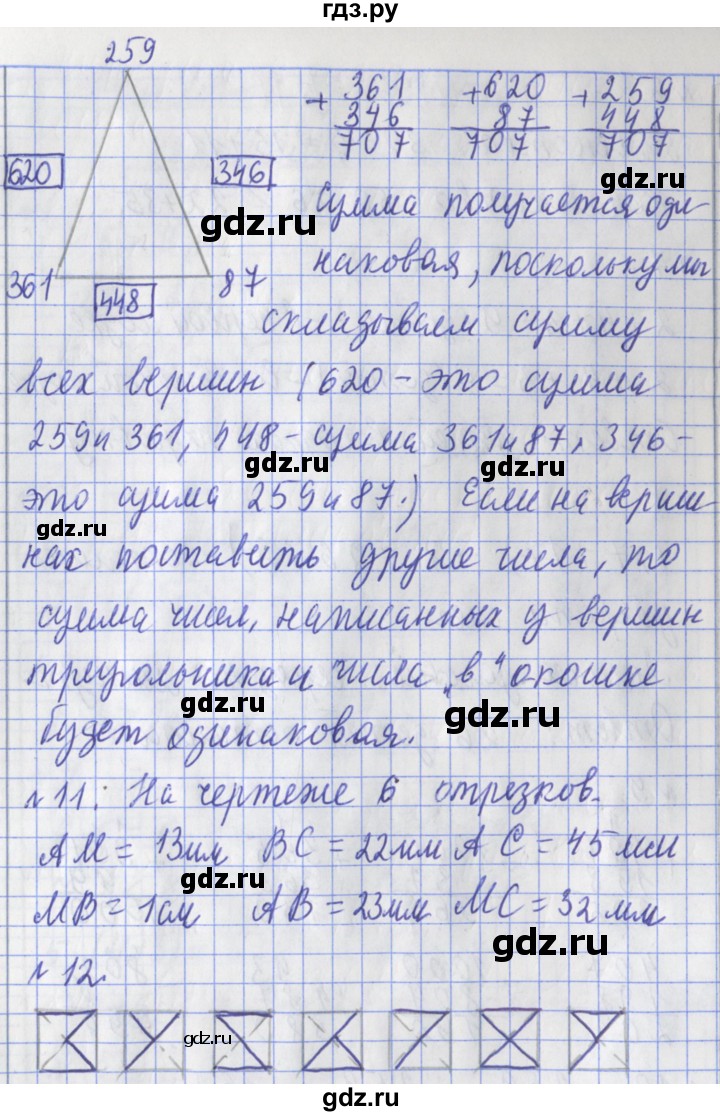 гдз.ру
259
620
346
361
448
87
+361
346
707
+620
87
707
+259
448
707
Сумма получается оди-
наковая, поскольку мы
складываем сумму
всех вершин (620 - это сумма
259 и 361, 448 - сумма 361 и 87, 346 -
это сумма 259 и 87.) Если на верши-
нах поставить другие числа, то
сумма чисел, написанных у вершин
треугольника и числа „в“ окошке
будет одинаковая.
№11: На чертеже 6 отрезков.
АМ = 13мм ВС = 22мм АС = 45мм
МВ = 1см АВ = 23мм МС = 32мм
№12.
gdz.ru
gdz.ru
gdz.ru
gdz.ru
gdz.ru
gdz.ru
gdz.ru
gdz.ru
gdz.ru
gdz.ru
gdz.ru
gdz.ru